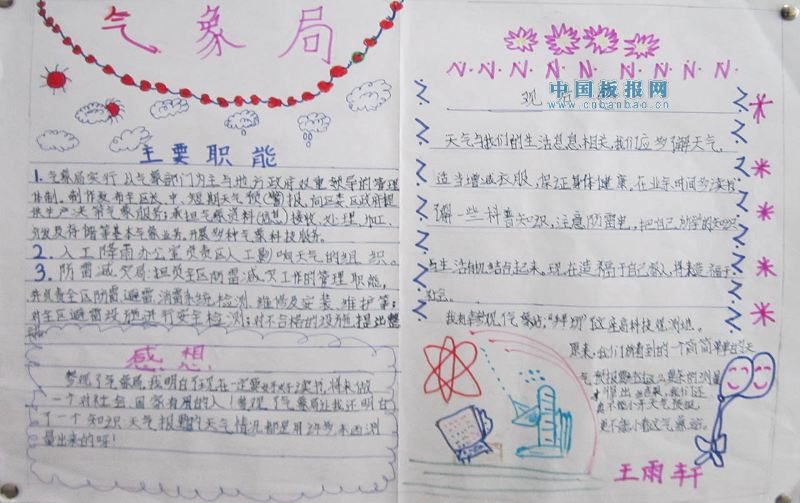 气象局
主要职能
1. 气象局实行以气象部门为主与地方政府双重领导的管理
体制。制作发布全区长、中、短期天气预(警)报,向区委区政府提
供生产天气气象服务;承担气象资料(信息)接收、处理、加工、
分发及存储等基本气象业务,开展多种气象科技服务。
2. 人工降雨办公室负责区人工影响天气的组织。
3. 防雷减灾局:担负全区防雷减灾工作的管理职能,
并负责全区防雷避雷、消雷系统检测、维修及安装、维护等;
对全区避雷设施进行安全检测;对不合格的设施提出整
感想
参观了气象局,我明白了现在一定要好好读书,将来做
一个对社会、国家有用的人!参观了气象局让我还明白
了一个知识,天气报的天气情况都是用许多东西测
量出来的呀!
观后
中国板报网
www.cnbanbao.cn
天气与我们的生活息息相关,我们应多了解天气,
适当增减衣服,保证身体健康。在业余时间多读书
了解一些科普知识,注意防雷电,把自己所学的知识
与生活相结合起来。现在造福于自己家人,将来造福于
社会。
我有幸参观气象站,“拜访”了这座高科技侦测站。
原来,我们所看到的一个简简单单的天
气预报
算出
不能小看天气预报
更不能小看这气象站。
王雨轩